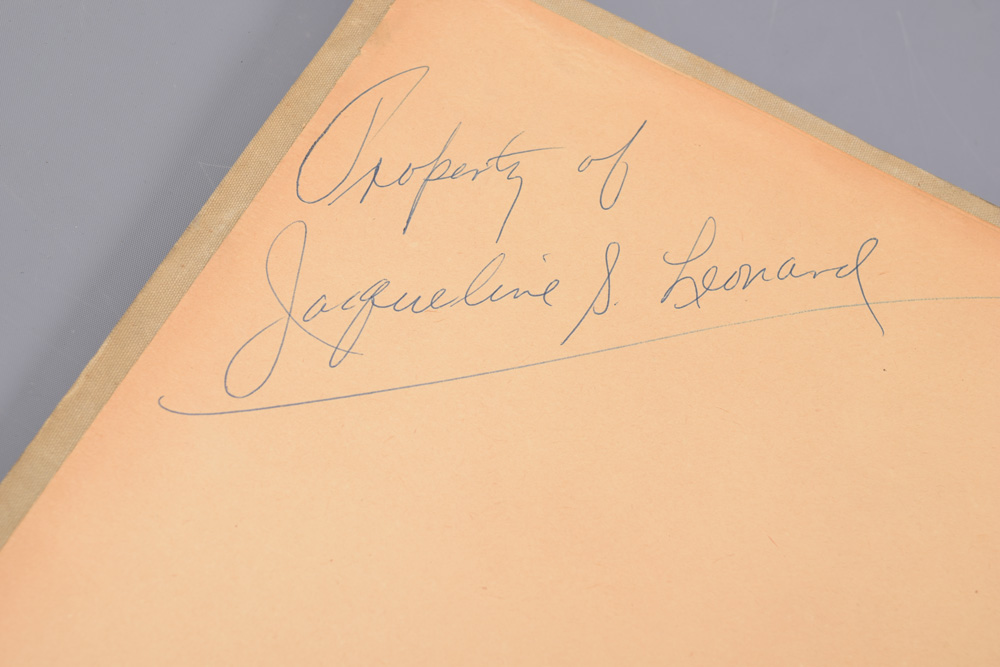 Property of
Jacqueline S. Leonard